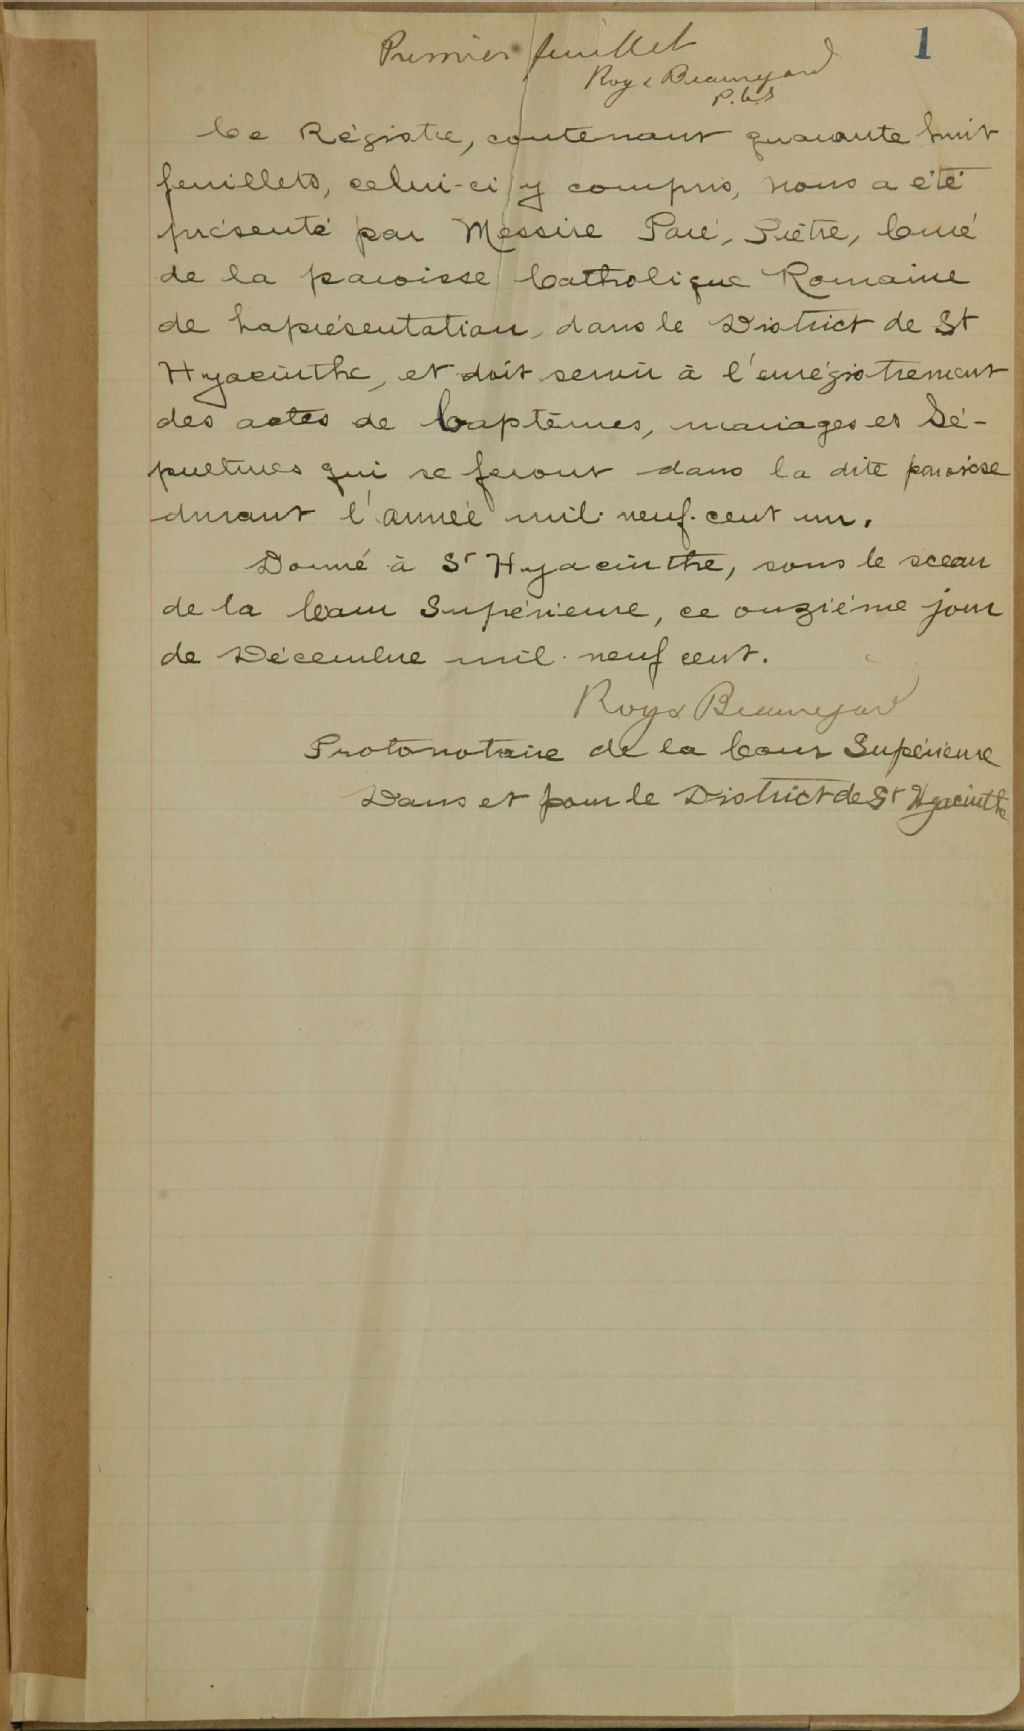 Premier feuillet
1
Roy & Beauregard
P.C.S
Ce Régistre, contenant quarante huit
feuillets, celui-ci y compris, nous a été
présenté par Messire Paré, Prêtre, Curé
de la paroisse Catholique Romaine
de Laprésentation, dans le District de St
Hyacinthe, et doit servir à l'enrégistrement
des actes de baptêmes, mariages et Sé-
pultures qui se feront dans la dite paroisse
durant l'année mil neuf cent un.
Donné à St Hyacinthe, sous le sceau
de la Cour Supérieure, ce onzième jour
de Décembre mil neuf cent.
Roy & Beauregard
Protonotaire de la Cour Supérieure
Dans et pour le District de St Hyacinthe